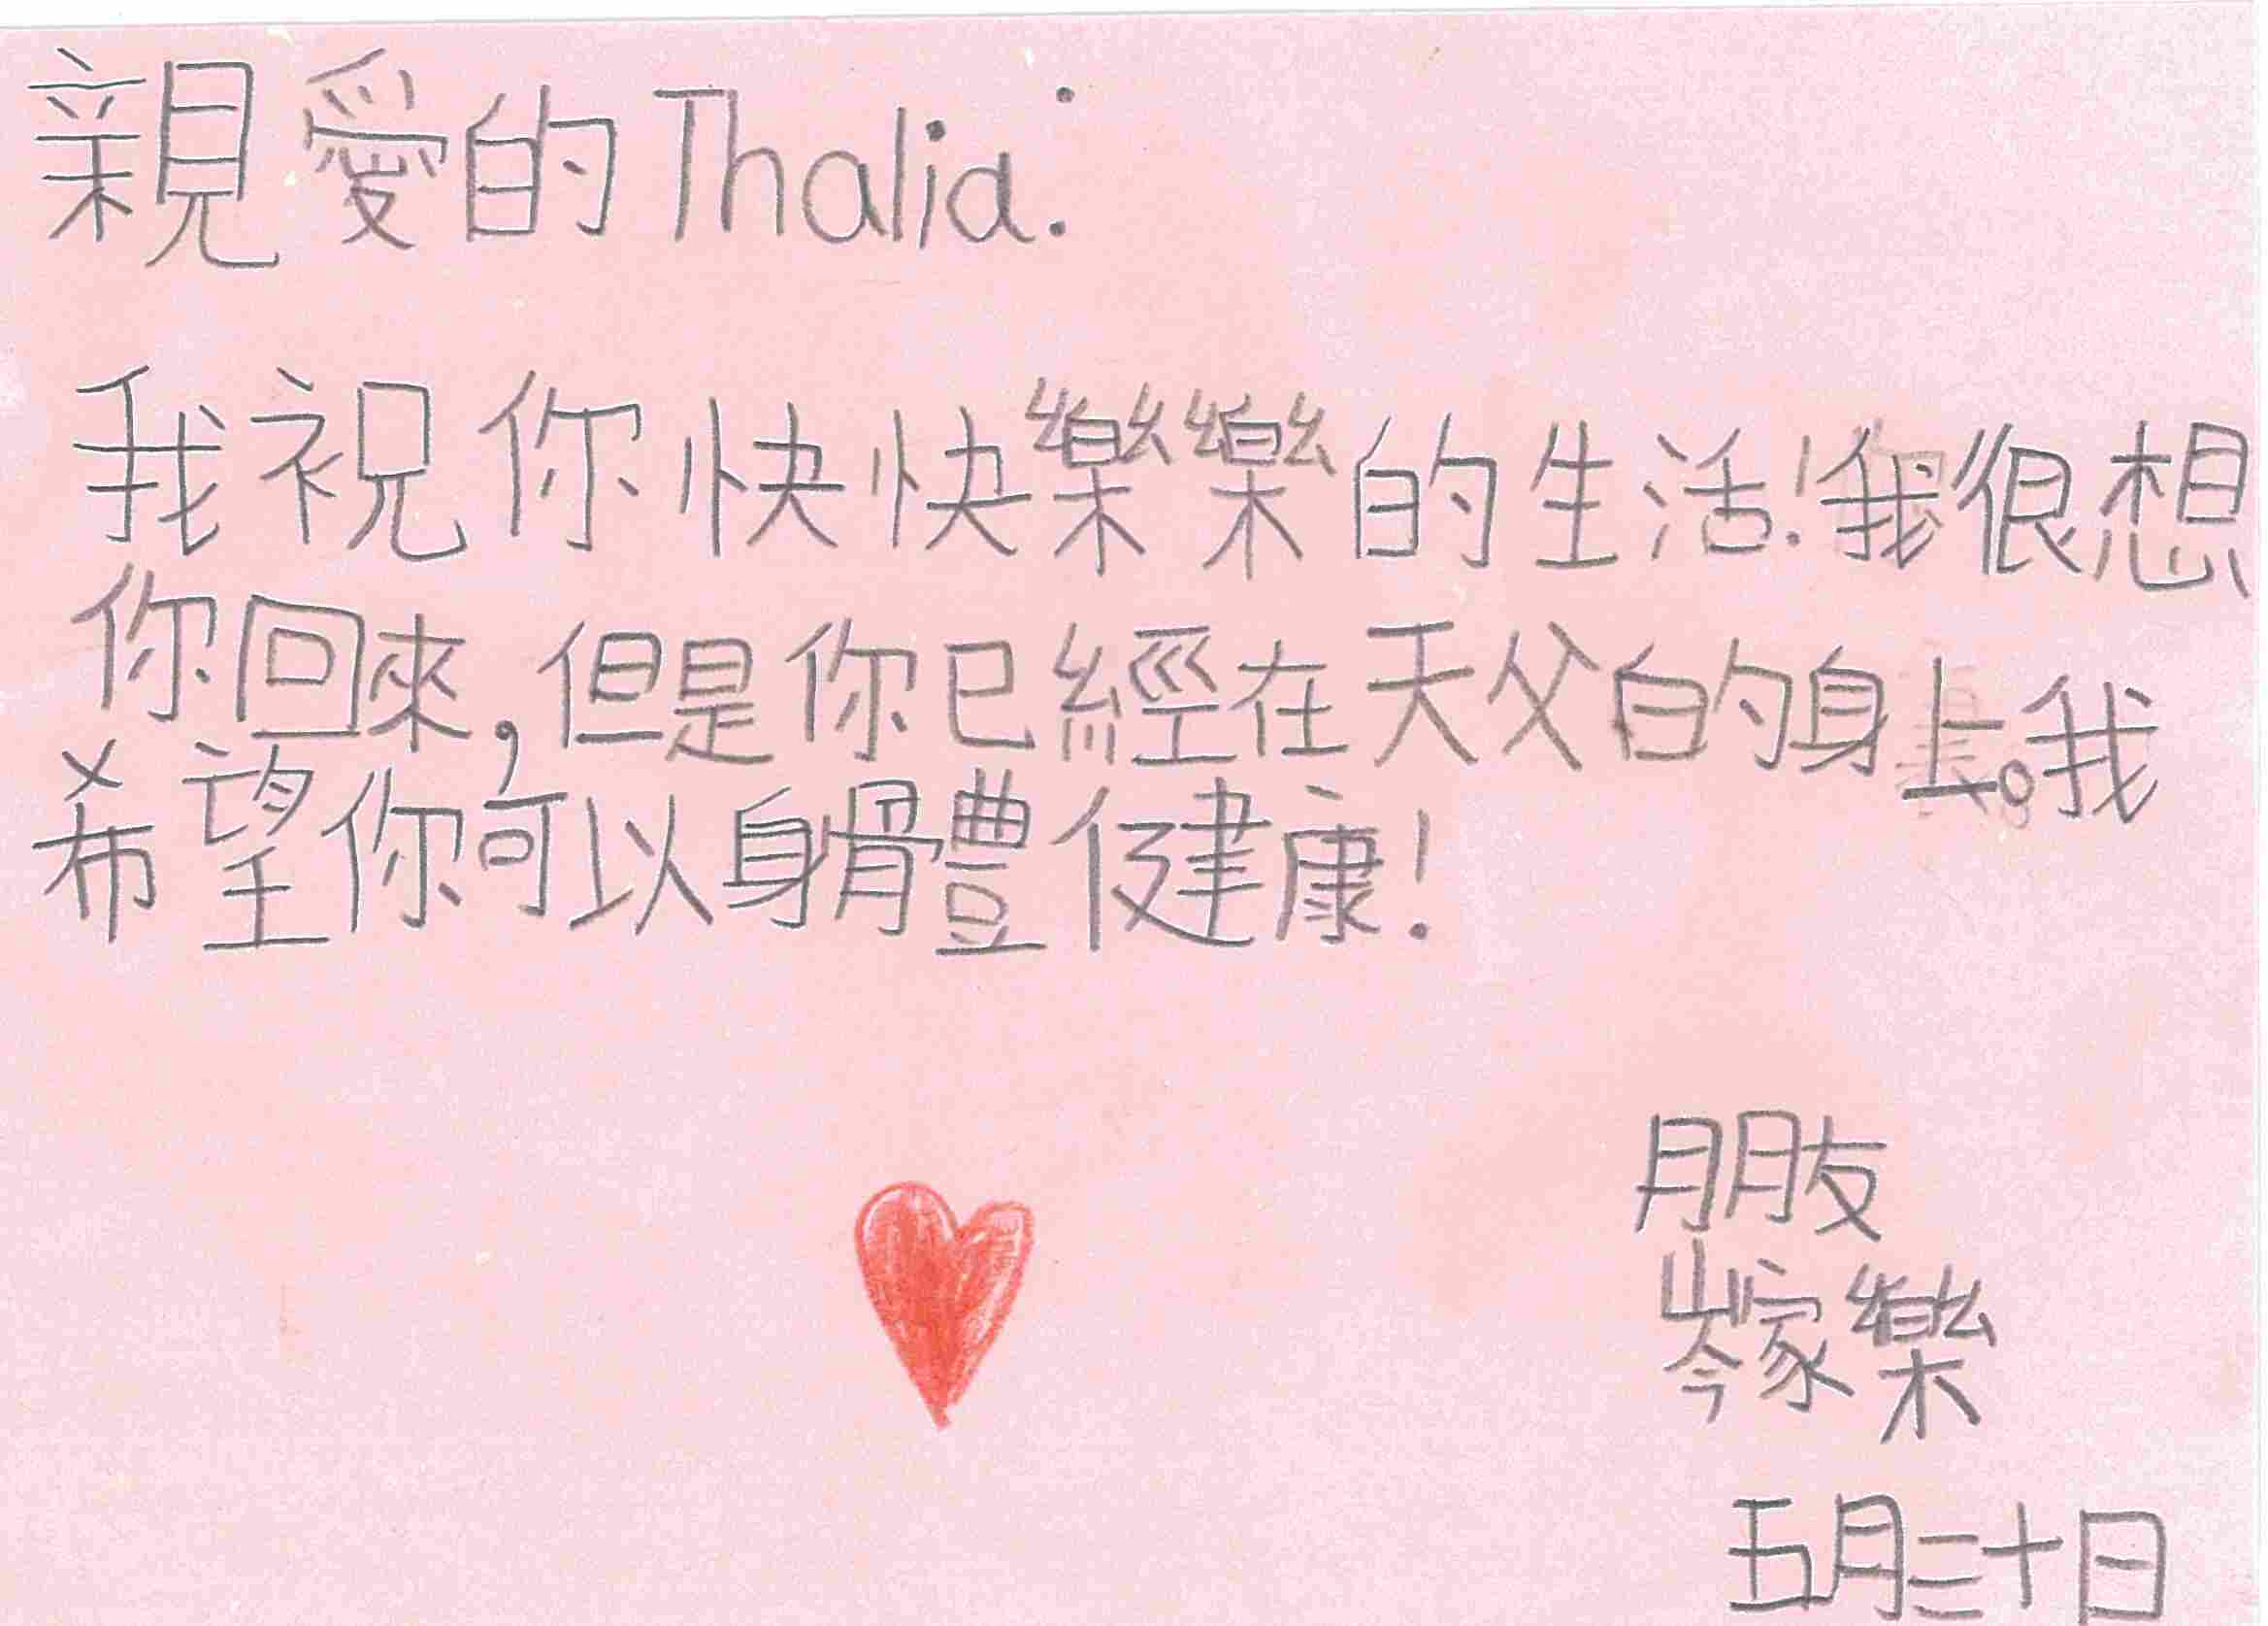 親愛的Thalia:
我祝你快快樂樂的生活!我很想
你回來,但是你已經在天父的身上。我
希望你可以身體健康!
朋友
岑嫁樂
五月三十日